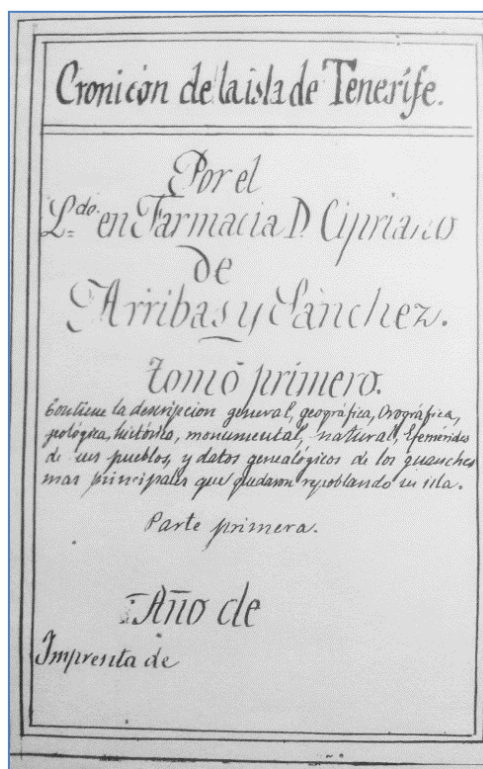 Cronicón de la isla de Tenerife.
Por el
Ldo. en Farmacia D. Cipriano
de
Arribas y Sánchez.
tomo primero.
Contiene la descripcion general, geográfica, Orográfica,
histórica, monumental, natural, Efemérides
de sus pueblos, y datos genealógicos de los guanches
mas principales que quedaron repoblando su isla.
Parte primera.
Año de
Imprenta de